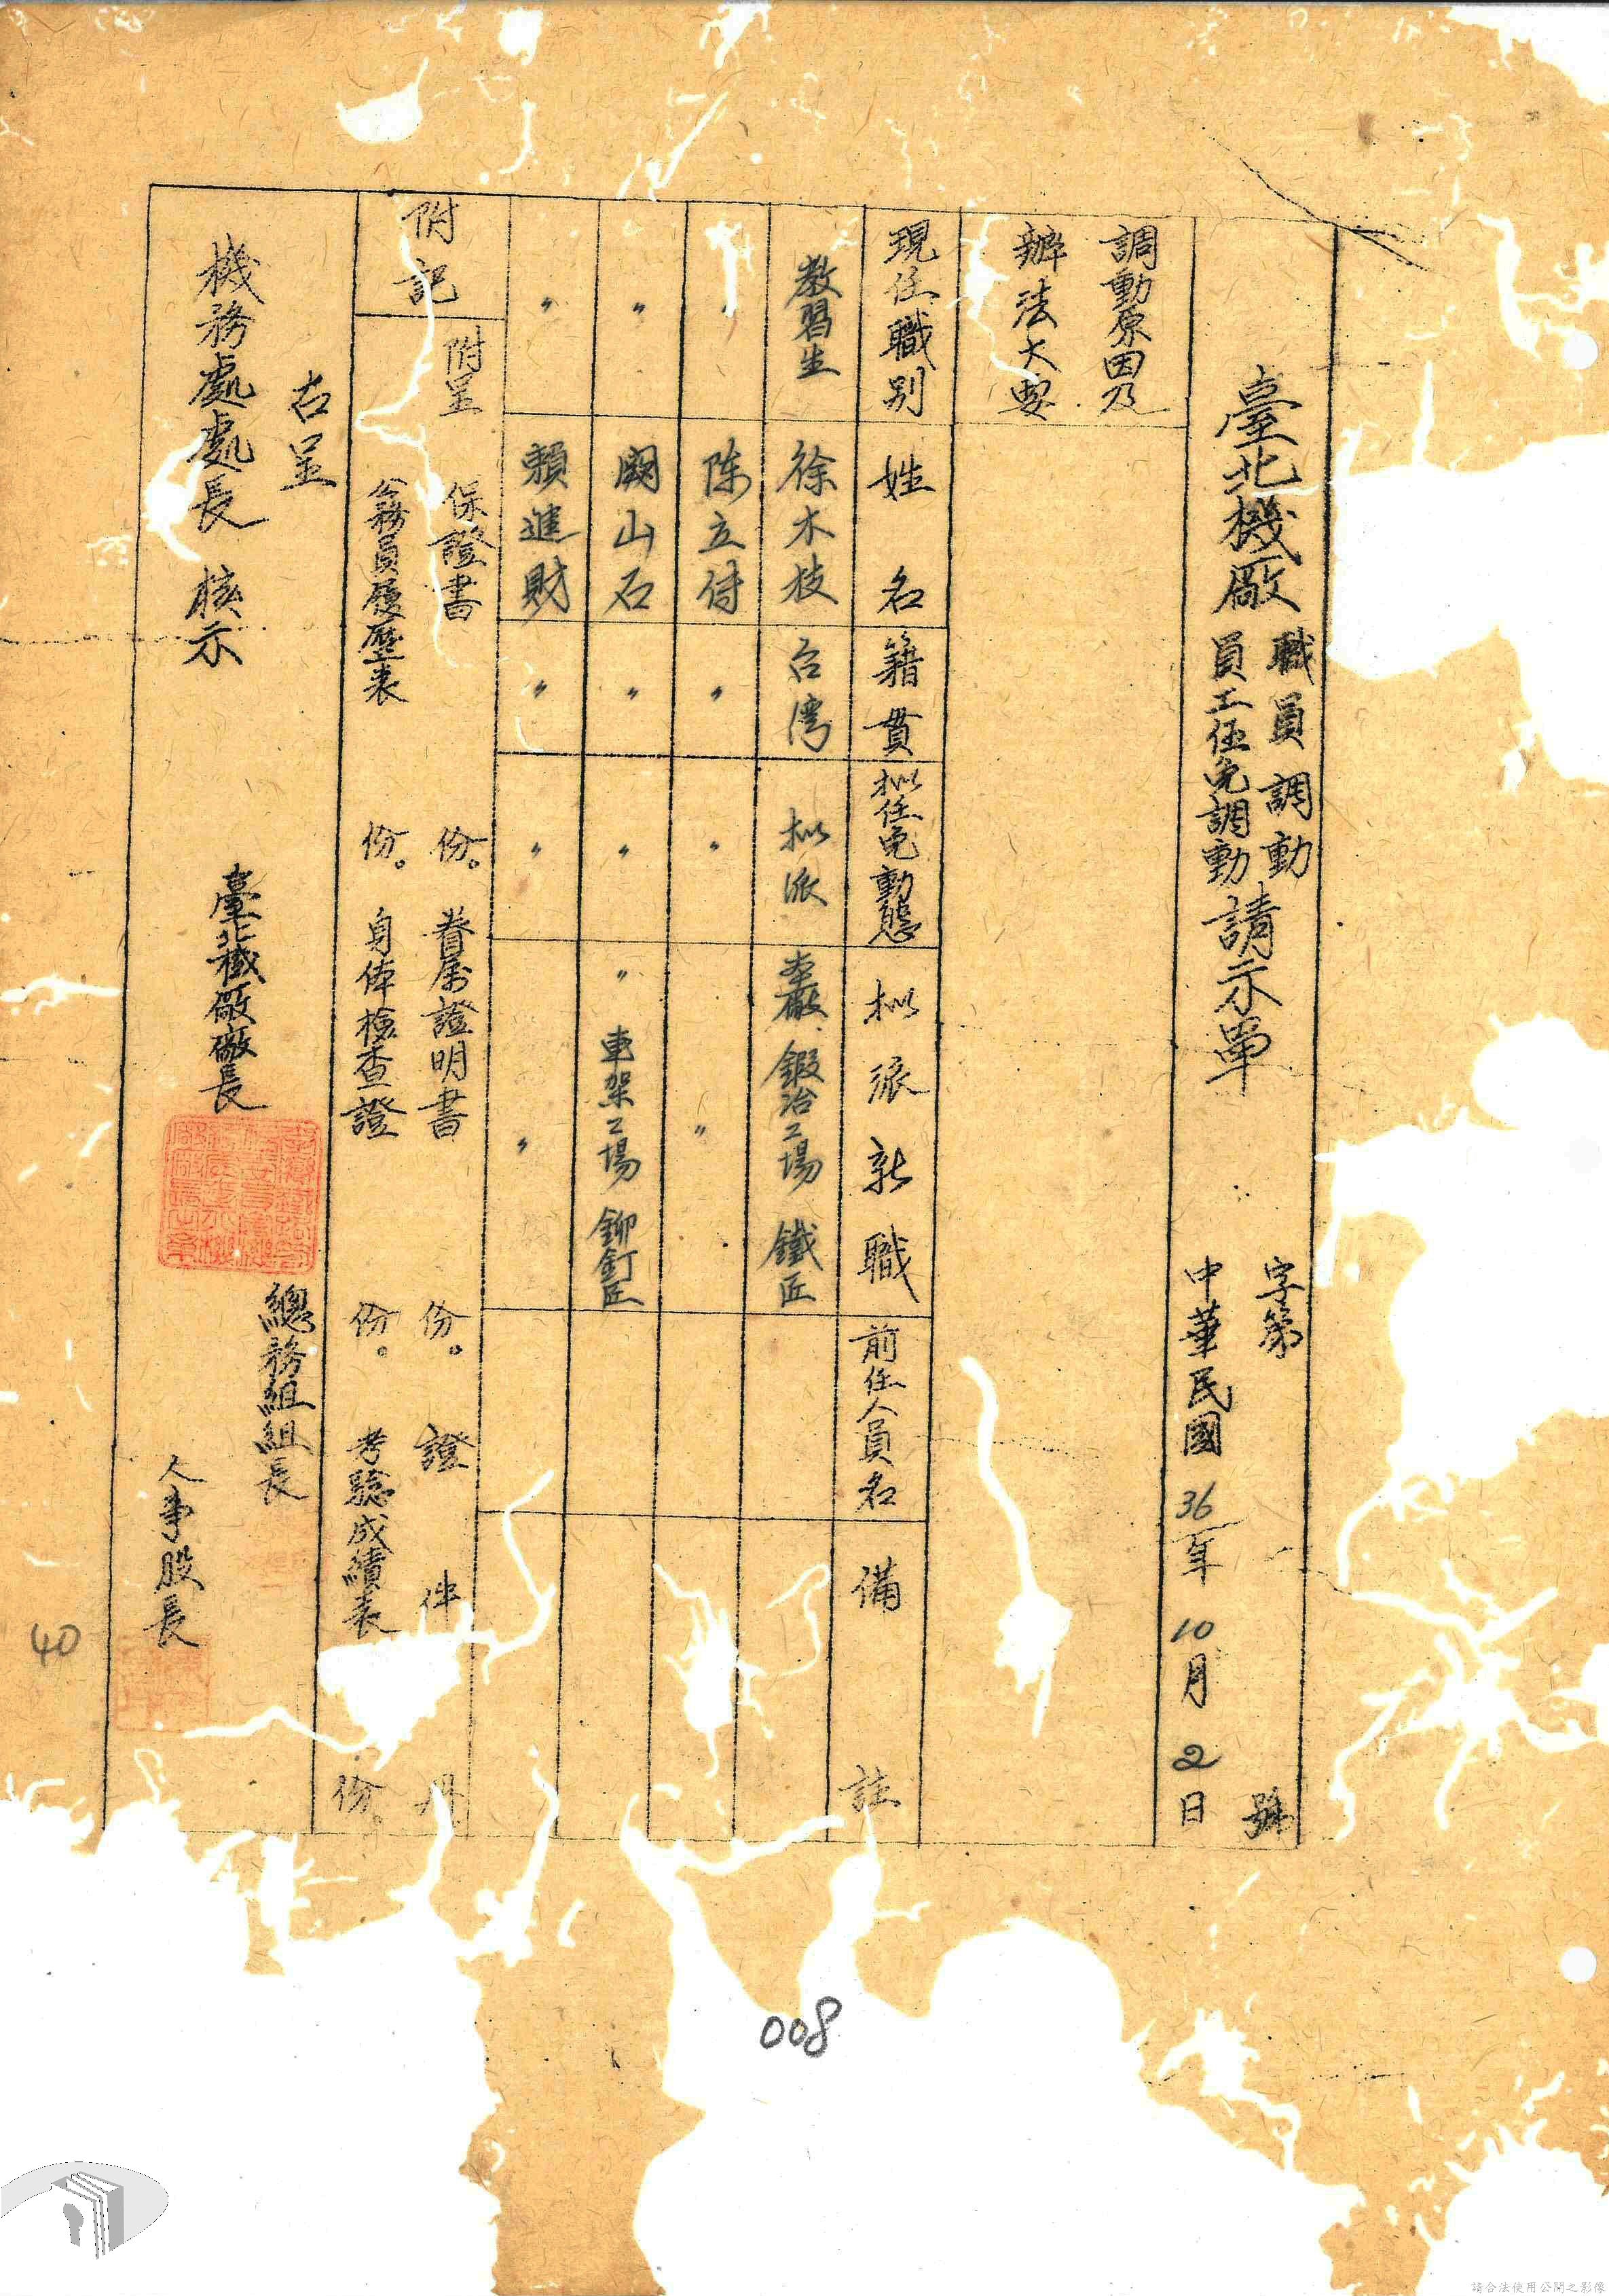 臺北機廠
職員調動
員工任免調動
請示單
字第　號
中華民國36年10月2日
調動原因及
辦法大要
現任職別　姓名　籍貫　拟任免動態　拟派新職　前任人員名　備註
教習生　徐木枝　台湾　拟派　本廠 鍛冶工場 鐵匠
〃　陈立侍　〃　〃　〃
〃　闕山石　〃　〃　〃 車架工場 鉚釘匠
〃　賴進財　〃　〃　〃
附記
附呈　保證書　份。眷属證明書　份。證件
公務員履歷表　份。身体檢查證　份。考驗成績表　份。
右呈
機務處處長　核示
臺北機廠廠長
總務組組長
人事股長
40
008
請合法使用公開之影像